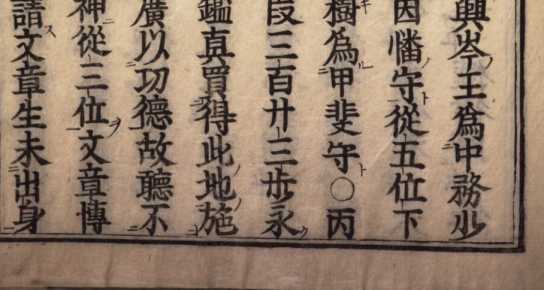 興岑王為中務少
因幡守從五位下
樹為甲斐守○丙
段三百廿三步永
鑑真買得此地施
廣以功德故聽不
神從三位文章博
請文章生未出身